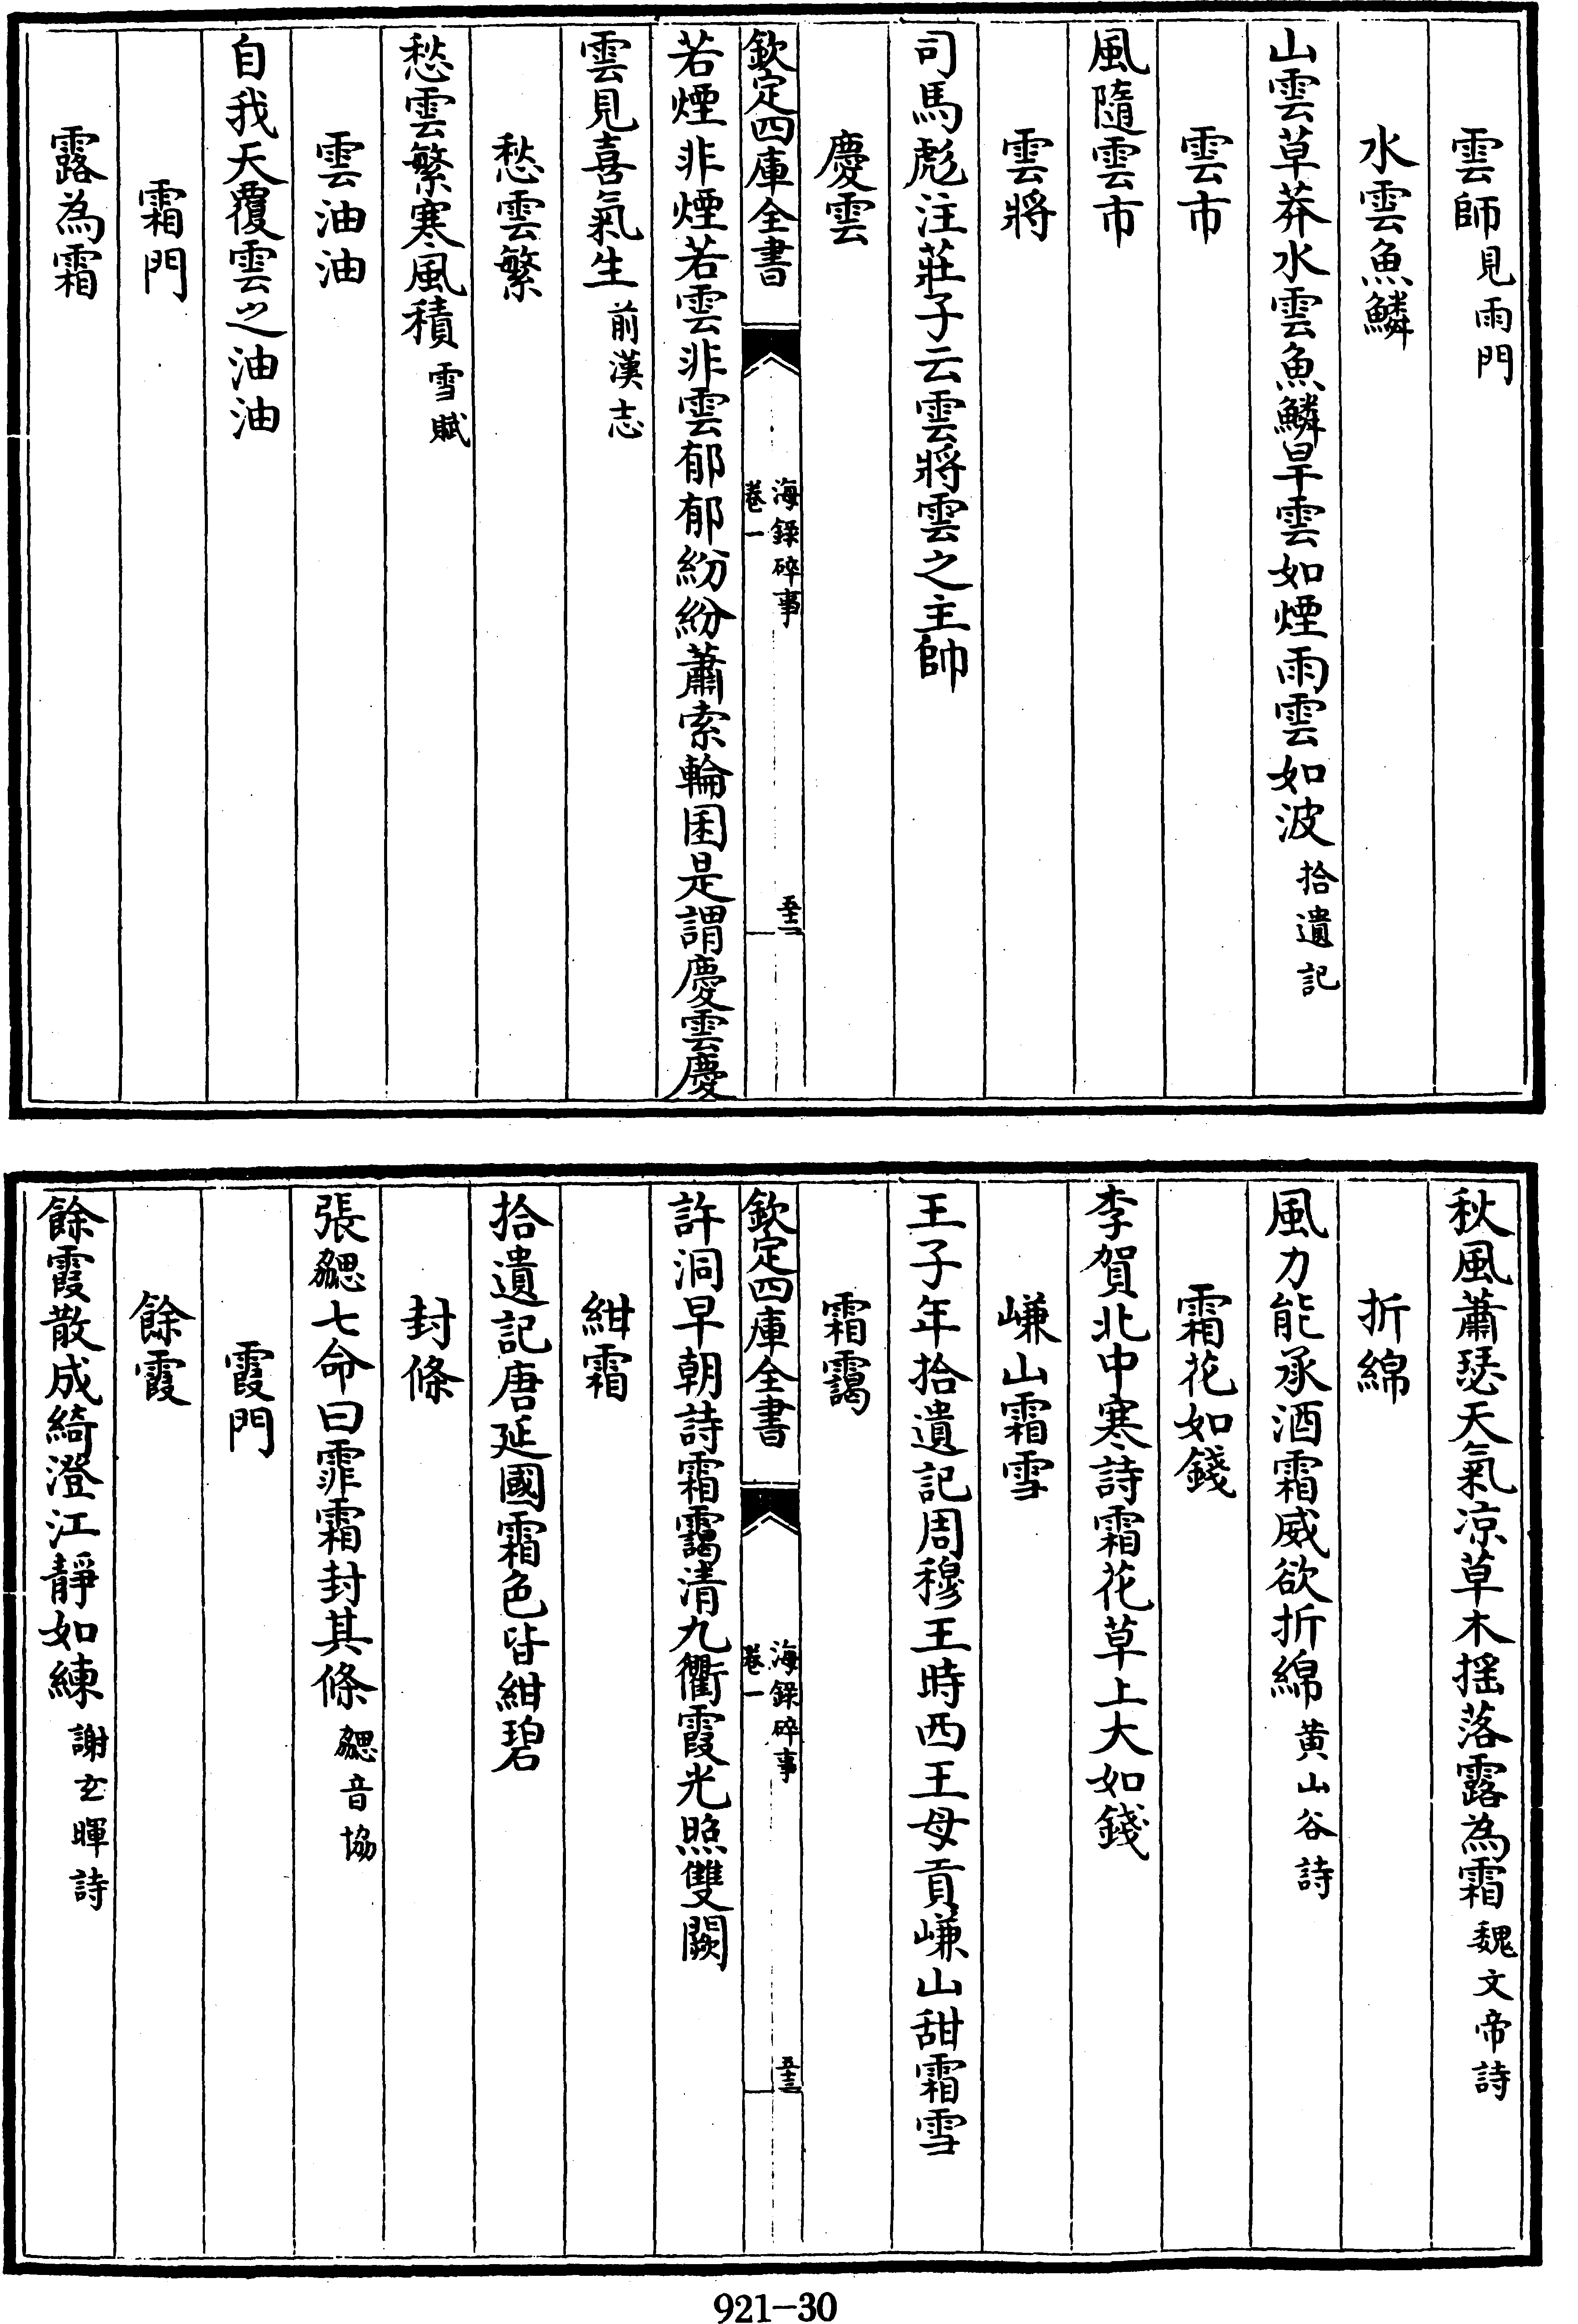 雲師見雨門
水雲魚鱗
山雲草莽水雲魚鱗旱雲如煙雨雲如波拾遺記
雲市
風隨雲市
雲將
司馬彪注莊子云雲將雲之主帥
慶雲
欽定四庫全書
海錄碎事
卷一
五十二
若煙非煙若雲非雲郁郁紛紛蕭索輪囷是謂慶雲慶
雲見喜氣生前漢志
愁雲繁
愁雲繁寒風積雪賦
雲油油
自我天覆雲之油油
霜門
露為霜
秋風蕭瑟天氣涼草木搖落露為霜魏文帝詩
折綿
風力能承酒霜威欲折綿黃山谷詩
霜花如錢
李賀北中寒詩霜花草上大如錢
嵰山霜雪
王子年拾遺記周穆王時西王母貢嵰山甜霜雪
霜靄
欽定四庫全書
海錄碎事
卷一
五十三
許洞早朝詩霜靄清九衢霞光照雙闕
紺霜
拾遺記唐延國霜色皆紺碧
封條
張勰七命曰霏霜封其條勰音協
霞門
餘霞
餘霞散成綺澄江靜如練謝玄暉詩
921-30